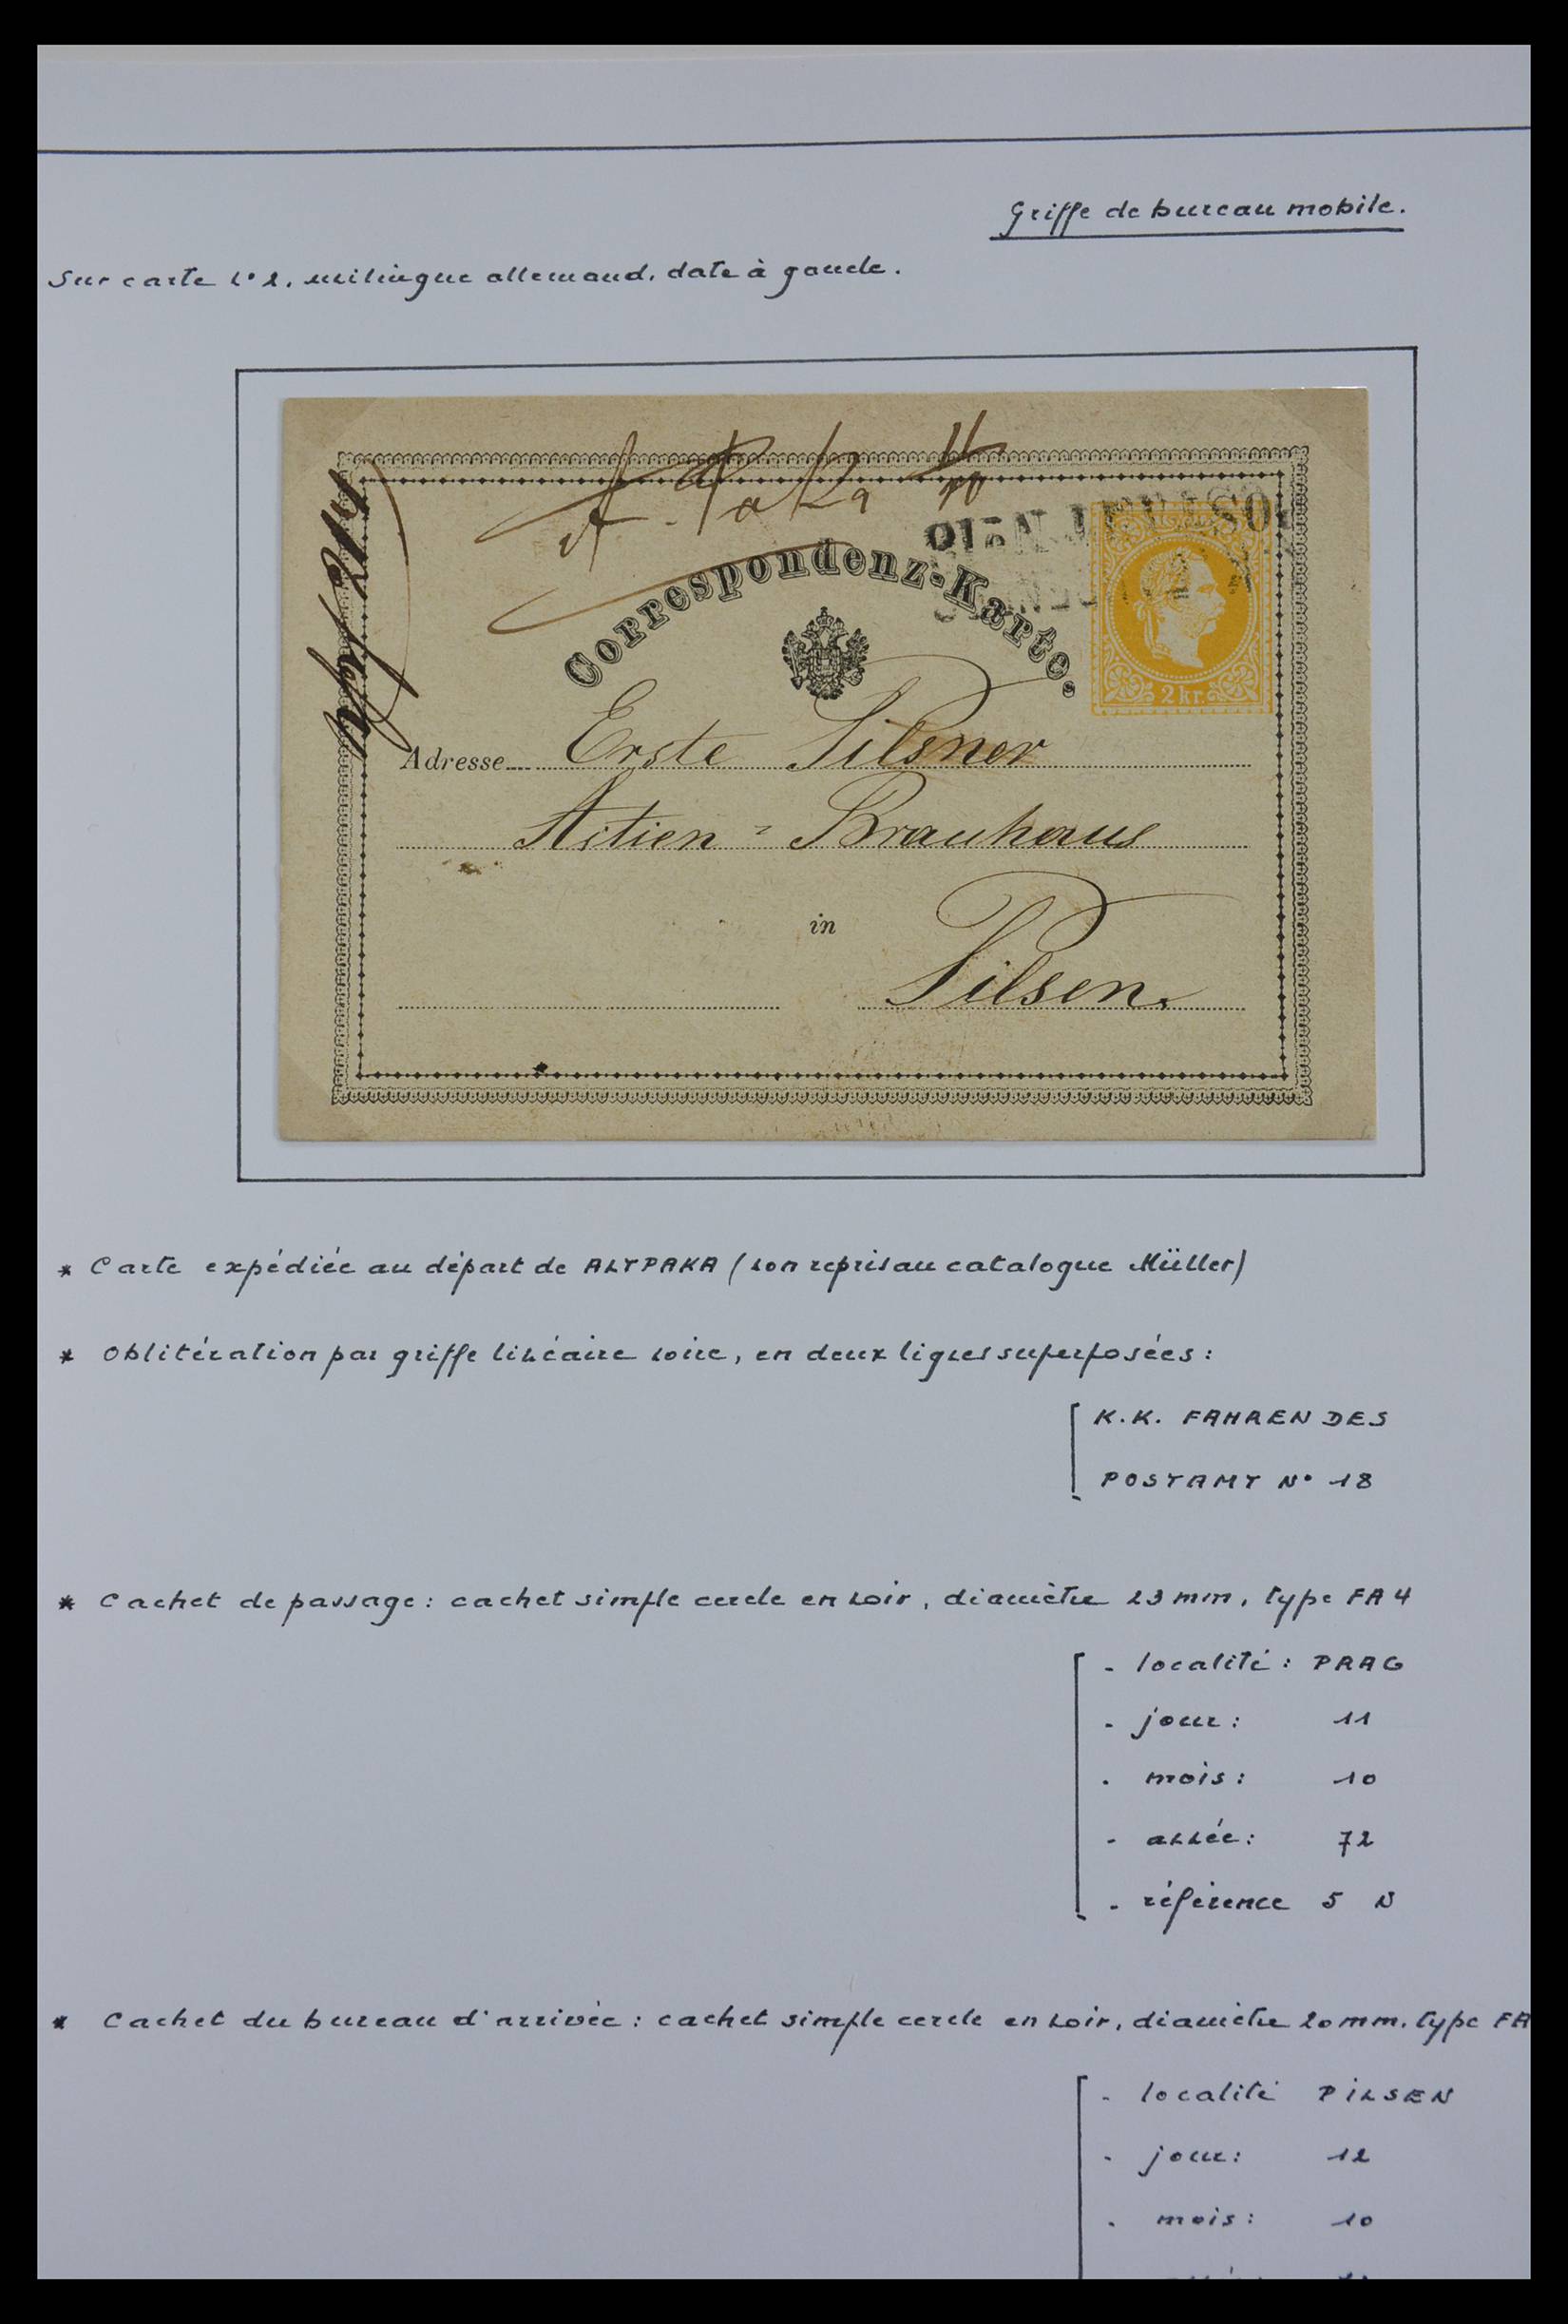 Griffe de bureau mobile.
Sur carte n° 2, unilingue allemand, date à gauche.
A. Paka 11/10
Correspondenz-Karte.
2 kr.
Adresse Erste Pilsner
Actien = Brauhaus
in
Pilsen.
* Carte expédiée au départ de ALTPAKA (non repris au catalogue Müller)
* Oblitération par griffe linéaire noire, en deux lignes superposées :
K.K. FAHRENDES
POSTAMT N° 18
* Cachet de passage : cachet simple cercle en noir, diamètre 23 mm, type FA 4
- localité : PRAG
- jour : 11
- mois : 10
- année : 72
- référence 5 N
* Cachet du bureau d'arrivée : cachet simple cercle en noir, diamètre 20 mm, type FA
- localité PILSEN
- jour : 12
- mois : 10